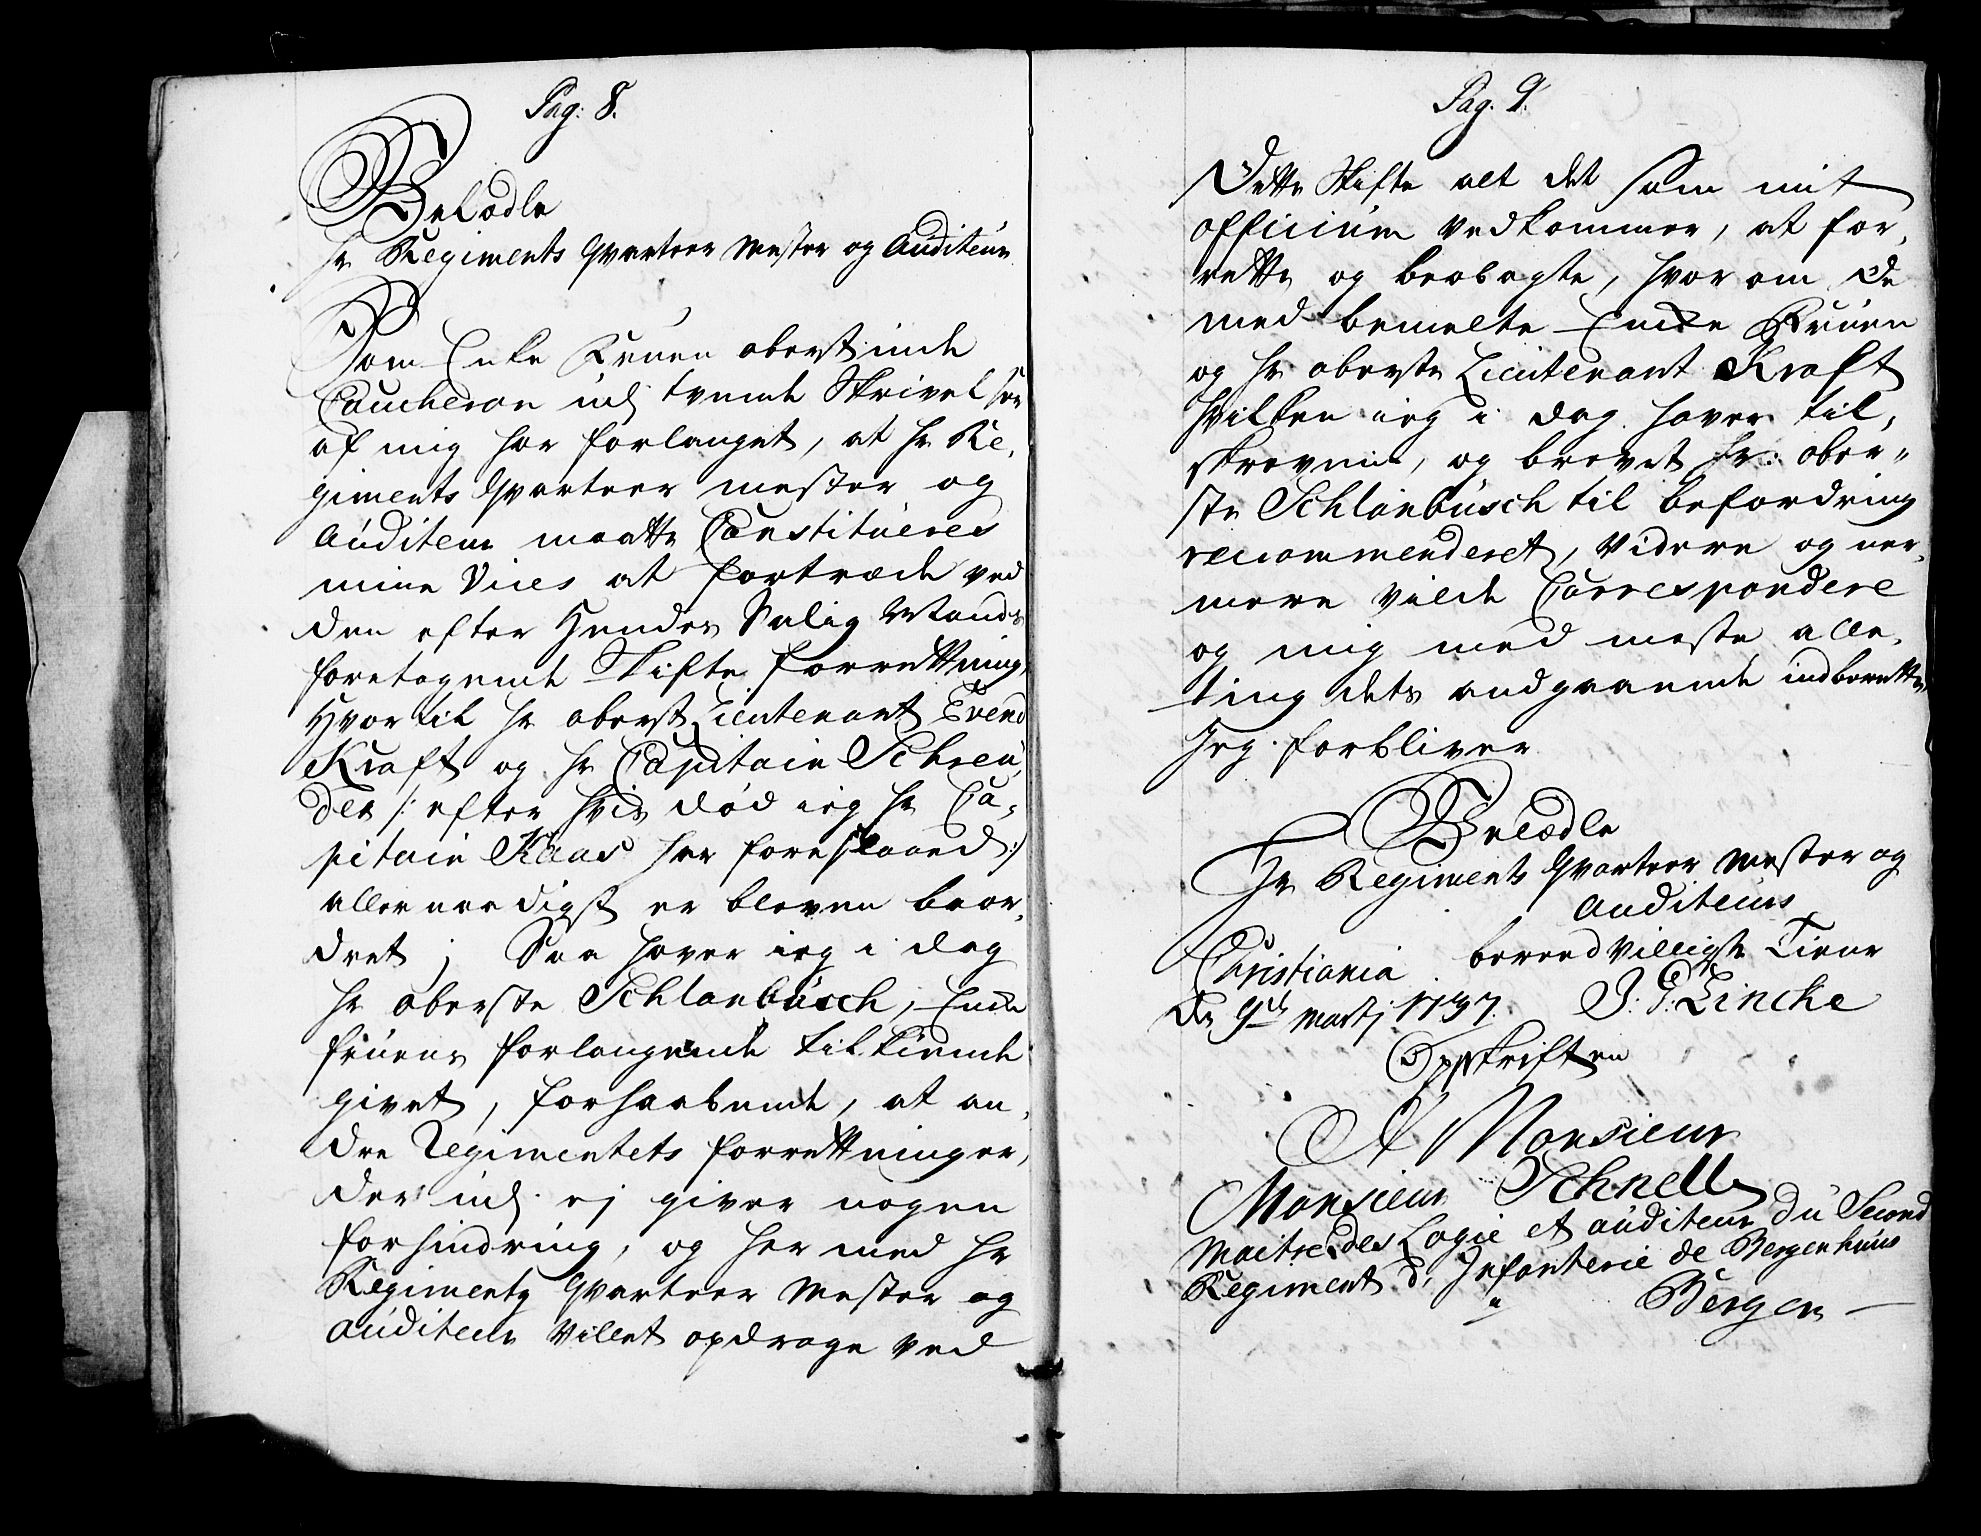 Pag: 8.
Velædle
Hr Regiments Qvarteer Mester og Auditeur
Som Enke Fruen oberstinde
Coucheron udj tvende Skrivelser
af mig har forlanget, at Hr Re,
giments Qvarteer mester og
Auditeur maatte Constitueres
mine Vices at fortræde ved
den efter Hendes Salig Mands
foretagende Skifte forrettning,
Hvortil Hr oberst Lieutenant Evend
Kraft og Hr Capitain Schreu,
der /: efter hvis død ieg Hr Ca-
pitain Kaas har foreslaaed :/
allernaadigst er bleven beor,
dret ; Saa haver ieg i dag
Hr oberste Schlanbusch, Enke
fruens forlangende tilkiende
givet, forhaabende, at an,
dre Regimentets forrettninger,
der udj ej giver nogen
forhindring, og her med Hr
Regiments Qvarteer Mester og
Auditeur Villet opdrage ved
Pag. 9.
Dette Skifte alt det som mit
officium vedkommer, at for,
rette og beobagte, hvor om De
med bemelte Enke Fruen
og Hr oberste Lieutenant Kraft
hvilken ieg i dag haver til,
skrevene, og brevet Hr: ober-
ste Schlanbusch til befordring
recommenderet, Videre og ner,
mere vilde Correspondere
og mig med meste alle,
ting dets andgaaende indberette,
Jeg forbliver
Velædle
Hr Regiments Qvarteer Mester og
Auditeurs
Christiania beredvilligste Tiener
De 9de Martj 1737. J. P: Lincke
Opskriften
A Monsieur
Monsieur Schnell
Maitre des Logie et auditeur Du Second
Regiment d, Infanterie de Bergenhuus
a Bergen